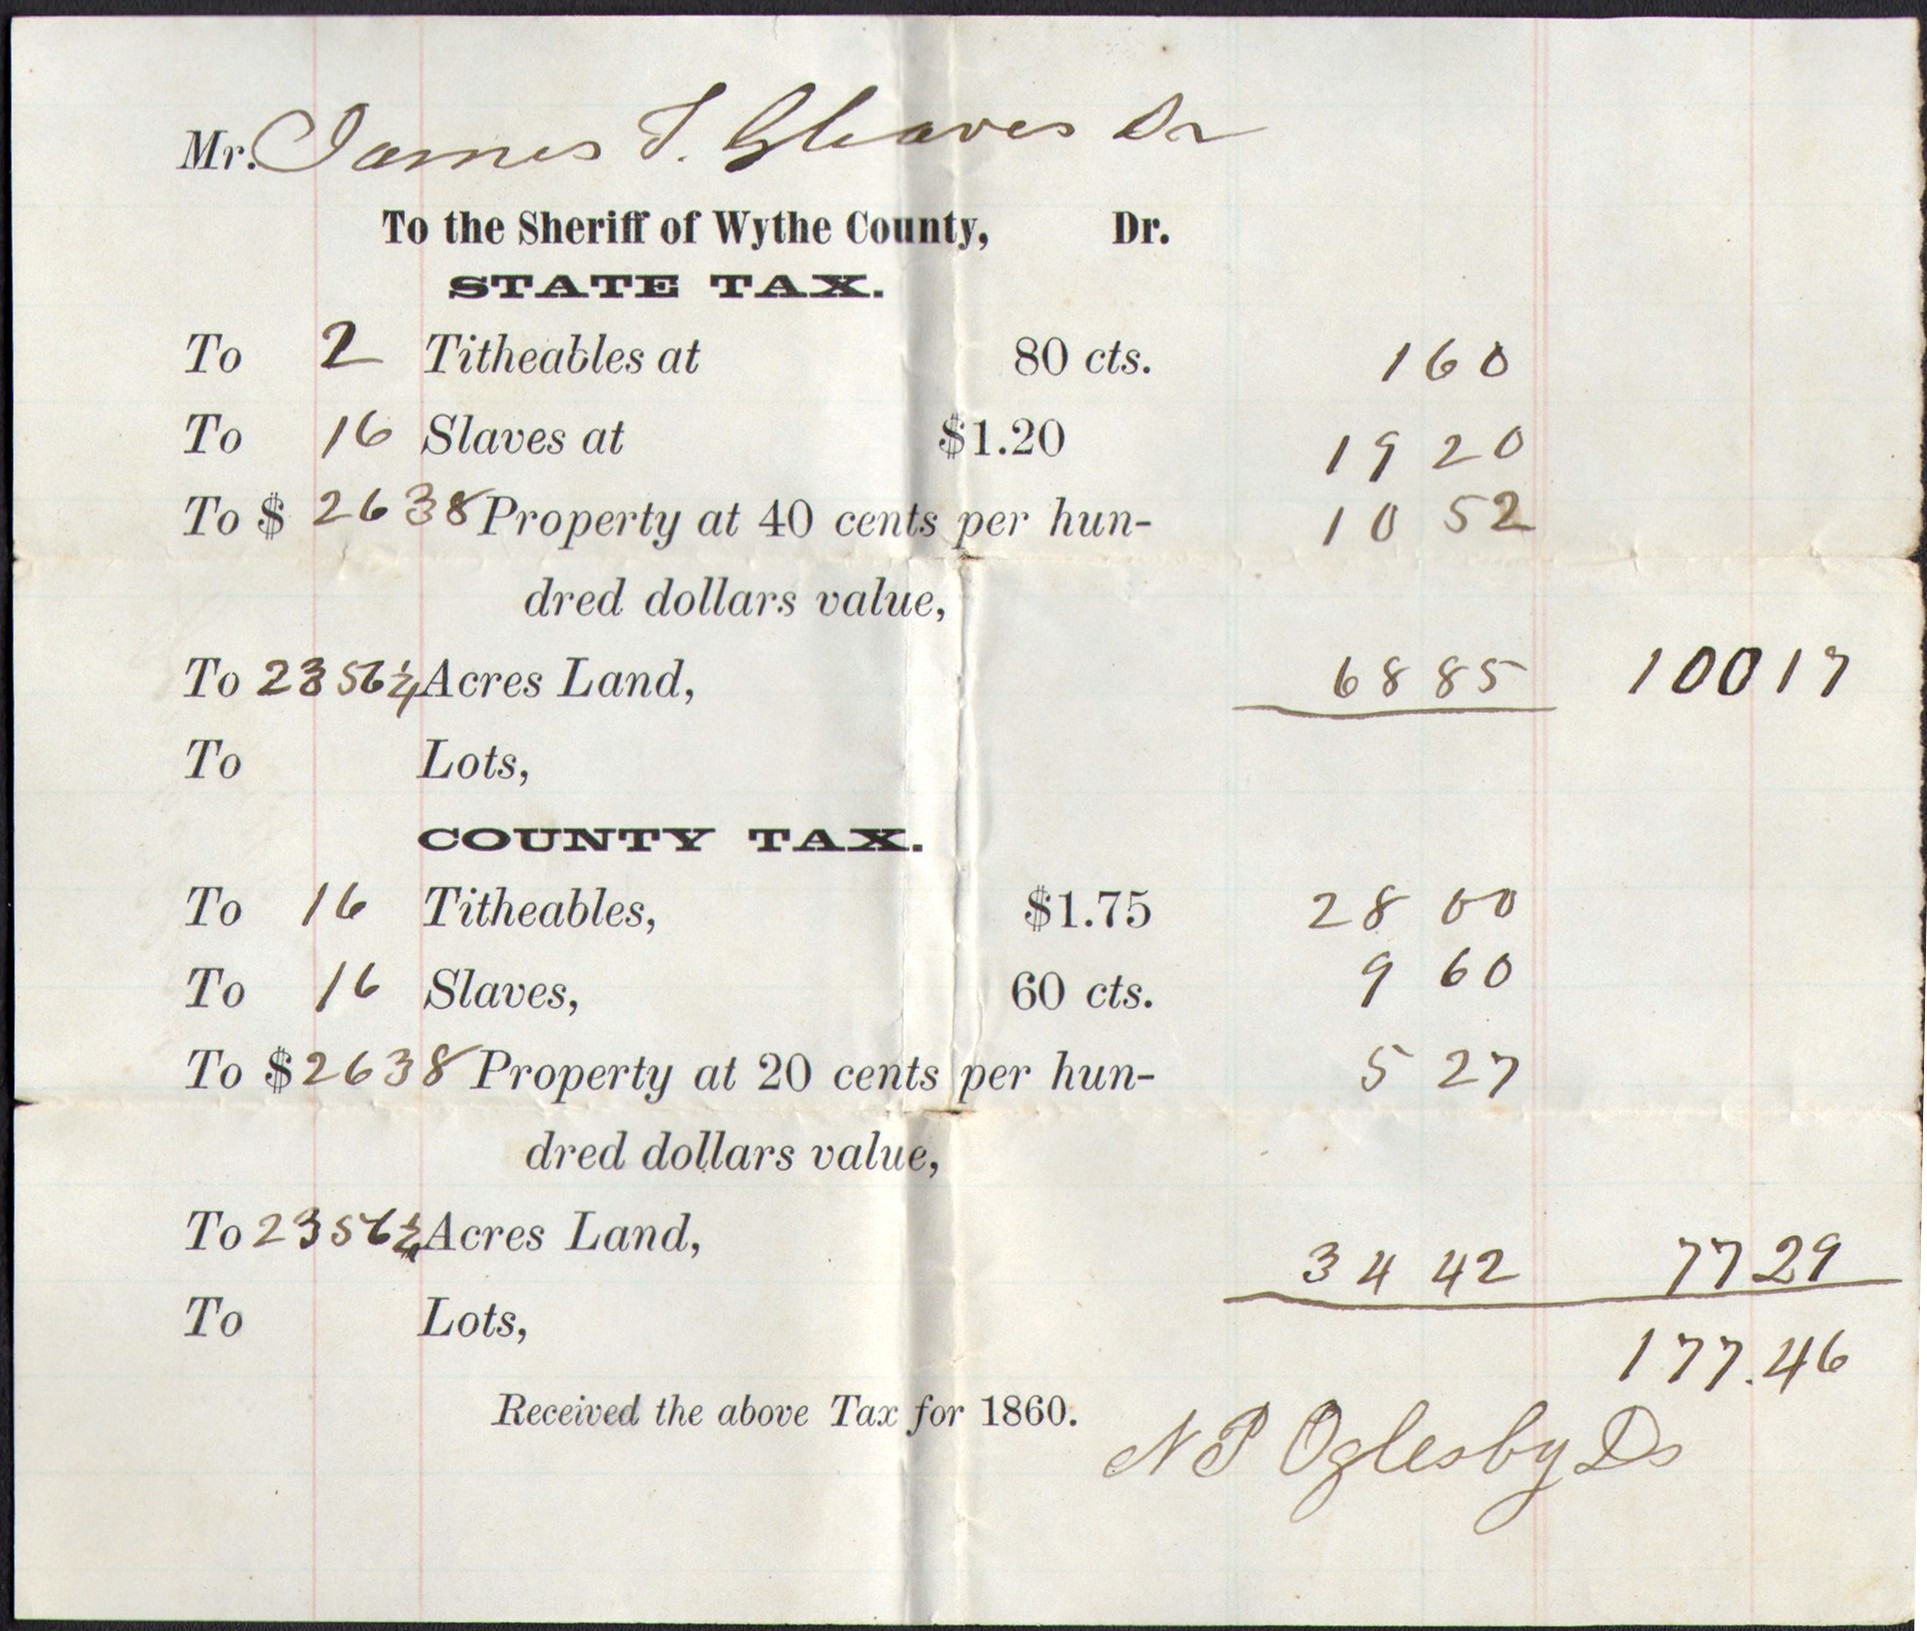 Mr. James T. Gleaves Dr
To the Sheriff of Wythe County, Dr.
STATE TAX.
To 2 Titheables at 80 cts. 1 60
To 16 Slaves at $1.20 19 20
To $ 2638 Property at 40 cents per hun- 10 52
dred dollars value,
To 2356¼ Acres Land, 68 85 100 17
To Lots,
COUNTY TAX.
To 16 Titheables, $1.75 28 00
To 16 Slaves, 60 cts. 9 60
To $2638 Property at 20 cents per hun- 5 27
dred dollars value,
To 2356¼ Acres Land, 34 42 77 29
To Lots,
177.46
Received the above Tax for 1860.
N P Oglesby Ds